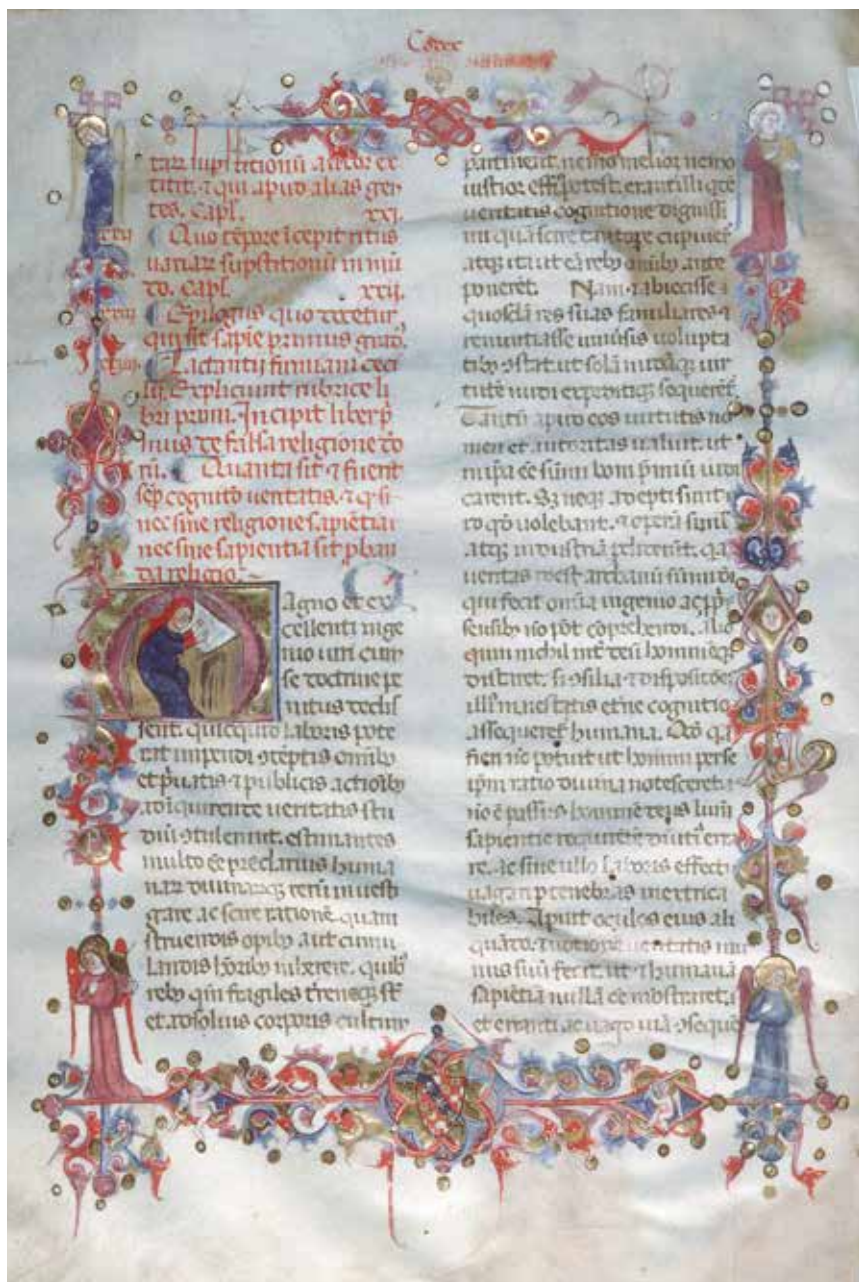 Codex
titit. ⁊ qui apud alias gen
tes. Capl. xxi.
xxii Quo tēpore īcepit ritus
uanaꝝ supstitionū in mū
do. capl. xxii.
Epilogus quo docetur
qui sit sapīe primus grad᷒.
Lactantii firmiani ceci
lii. Expliciunt rubrice li
bri primi. Incipit liber p̄
mus de falsa religione deo
rū. Quanta sit ⁊ fuerit
sēp cognitō ueritatis. ⁊ ꝙ si
nec sine religione sapiētia
nec sine sapientia sit ꝓban
da religio.
Agno et ex
cellenti inge
nio uiri cum
se doctrine pe
nitus dedis
sent. quicquid laboris pote
rat impendi ⁊tēptis omīb᷒
et p̄uatis ⁊ publicis actiōib᷒
ad īquirende ueritatis stu
diū ꝯtulerunt. estimantes
multo eē preclarius huma
naꝝ diuinarūq̄ rerū inuesti
gare ac scire rationē quam
struendis opib᷒ aut cumu
landis honorib᷒ inherere. quib᷒
reb᷒ qm̄ fragiles terreneq̄ st̄
et ad solius corporis cultum
pertinent. nemo melior nemo
iustior effici potest. erant illi qdē
ueritatis cognitione dignissi
mi quā scire tantopere cupiuer̄
atq̄ ita ut eā reb᷒ omīb᷒ ante
ponerēt. Nam ⁊ abiecisse
quosdā res suas familiares ⁊
renuntiasse uniuersis uolupta
tib᷒ ꝯstat. ut solā nudāq̄ uir
tutē nudi expeditiq̄ sequerēt᷒.
Tantū apud eos uirtutis no
men et autoritas ualuit. ut
in ip̄a eē sūmi boni p̄miū iudi
carent. Sꝫ neq̄ adepti sunt
id qd̄ uolebant. ⁊ operā simul
atq̄ industriā perdiderūt. q̄a
ueritas id est archanū sūmi dei
qui fecit omīa ingenio ac ꝓprijs
sensib᷒ nō pōt cōprehendi. alio
quin nichil int̄ deū hominēq̄
distaret. si ꝯsilia ⁊ dispositōes
illi᷒ maiestatis et᷒ne cognitio
assequeret᷒ humana. Qd̄ q̄a
fieri nō potuit ut homini per se
ip̄m ratio diuina notesceret.
nō ē passus hominē deus lumē
sapientie requirētē diuti᷒ erra
re. ac sine ullo laboris effectu
uagari p tenebras inextrica
biles. Aperuit oculos eius ali
quādo. ⁊ notionē ueritatis mu
nus suū fecit. ut ⁊ humanā
sapiētiā nullā eē mōstraret.
et erranti ac uago uiā ꝯsequēde